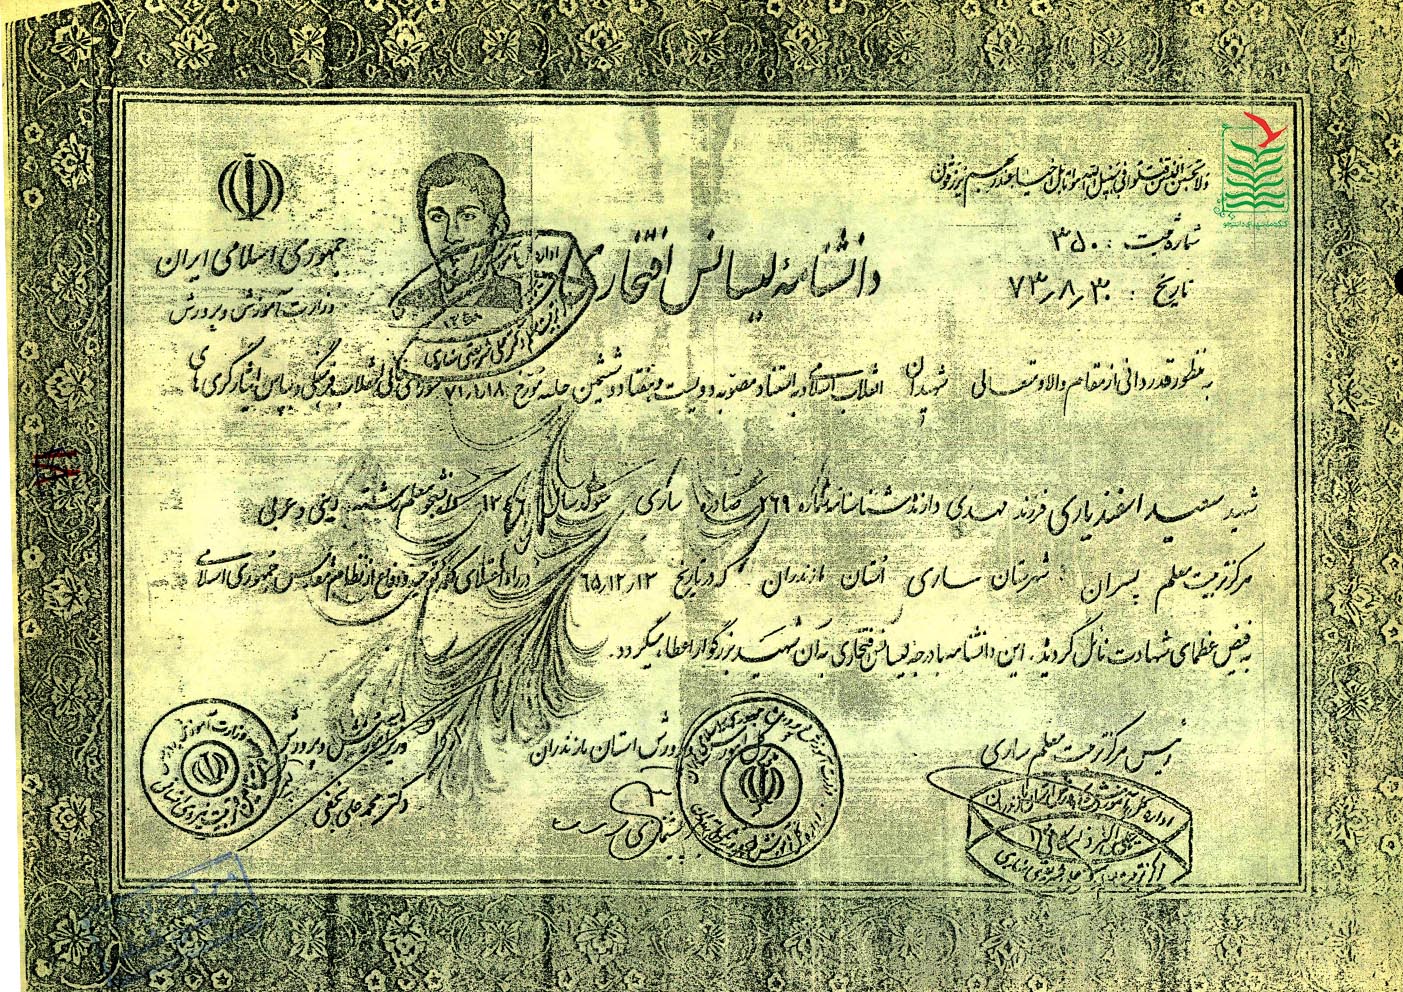 ولا تحسبن الذین قتلوا فی سبیل الله امواتا بل احیاء عند ربهم یرزقون
شماره ثبت : ۳۵۰
تاریخ : ۷۳٫۸٫۳۰
جمهوری اسلامی ایران
وزارت آموزش و پرورش
دانشنامه لیسانس افتخاری
به منظور قدردانی از مقام والا و متعالی شهیدان انقلاب اسلامی و به استناد مصوبه دویست و هفتاد و ششمین جلسه مورخ ۷۱٫۱٫۱۸ شورای عالی انقلاب فرهنگی و بپاس ایثارگری های
شهید سعید اسفندیاری فرزند مهدی دارنده شناسنامه شماره ۲۶۹ صادره ساری متولد سال ۱۳۴۶ دانشجو معلم رشته دینی و عربی
مرکز تربیت معلم پسران شهرستان ساری استان مازندران که در تاریخ ۶۵٫۱۲٫۱۳ در راه اعتلای کلمه توحید و دفاع از نظام مقدس جمهوری اسلامی
به فیض عظمای شهادت نائل گردید. این دانشنامه با درجه لیسانس افتخاری به آن شهید بزرگوار اعطا میگردد.
رئیس مرکز تربیت معلم ساری
پرورش استان مازندران
وزیر آموزش و پرورش
دکتر محمد علی نجفی
۷۸